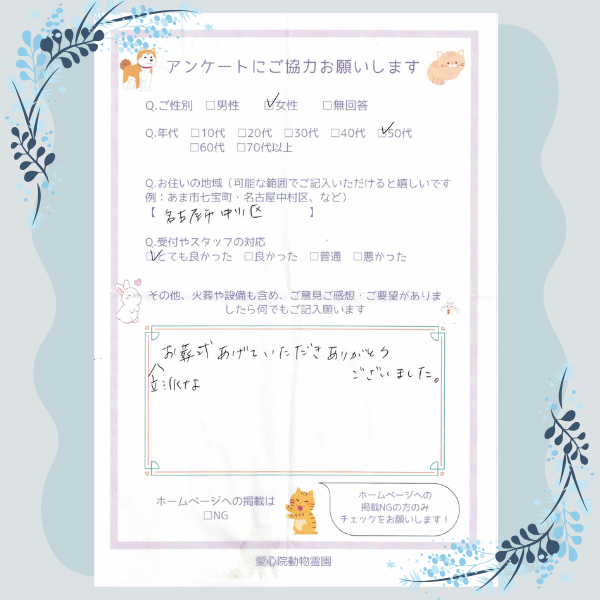 アンケートにご協力お願いします
Q.ご性別 □男性 ☑女性 □無回答
Q.年代 □10代 □20代 □30代 □40代 ☑50代
□60代 □70代以上
Q.お住いの地域（可能な範囲でご記入いただけると嬉しいです
例：あま市七宝町・名古屋市中村区、など）
【 名古屋市中川区 】
Q.受付やスタッフの対応
☑とても良かった □良かった □普通 □悪かった
その他、火葬や設備も含め、ご意見ご感想・ご要望がありま
したら何でもご記入願います
お葬式あげていただきありがとう
ございました。
立派な
ホームページへの掲載は
□NG
ホームページへの
掲載NGの方のみ
チェックをお願いします！
愛心院動物霊園